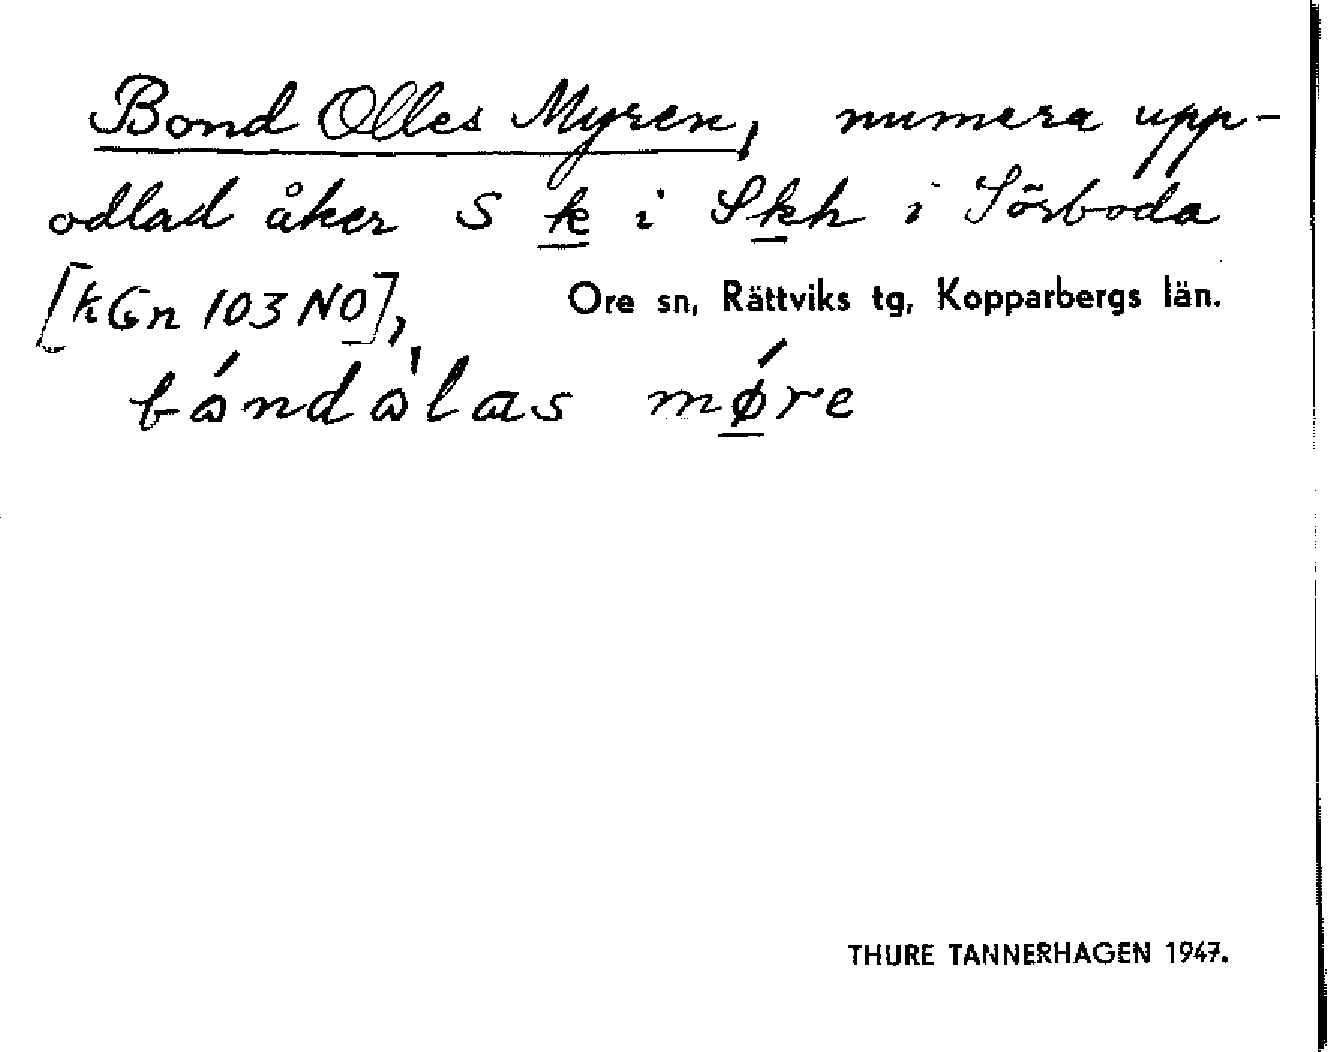 Bond Olles Myren, numera upp-
odlad åker S k i Skh i Sörboda
[kGn 103 NO], Ore sn, Rättviks tg, Kopparbergs län.
bóndòlas mǿre
THURE TANNERHAGEN 1947.